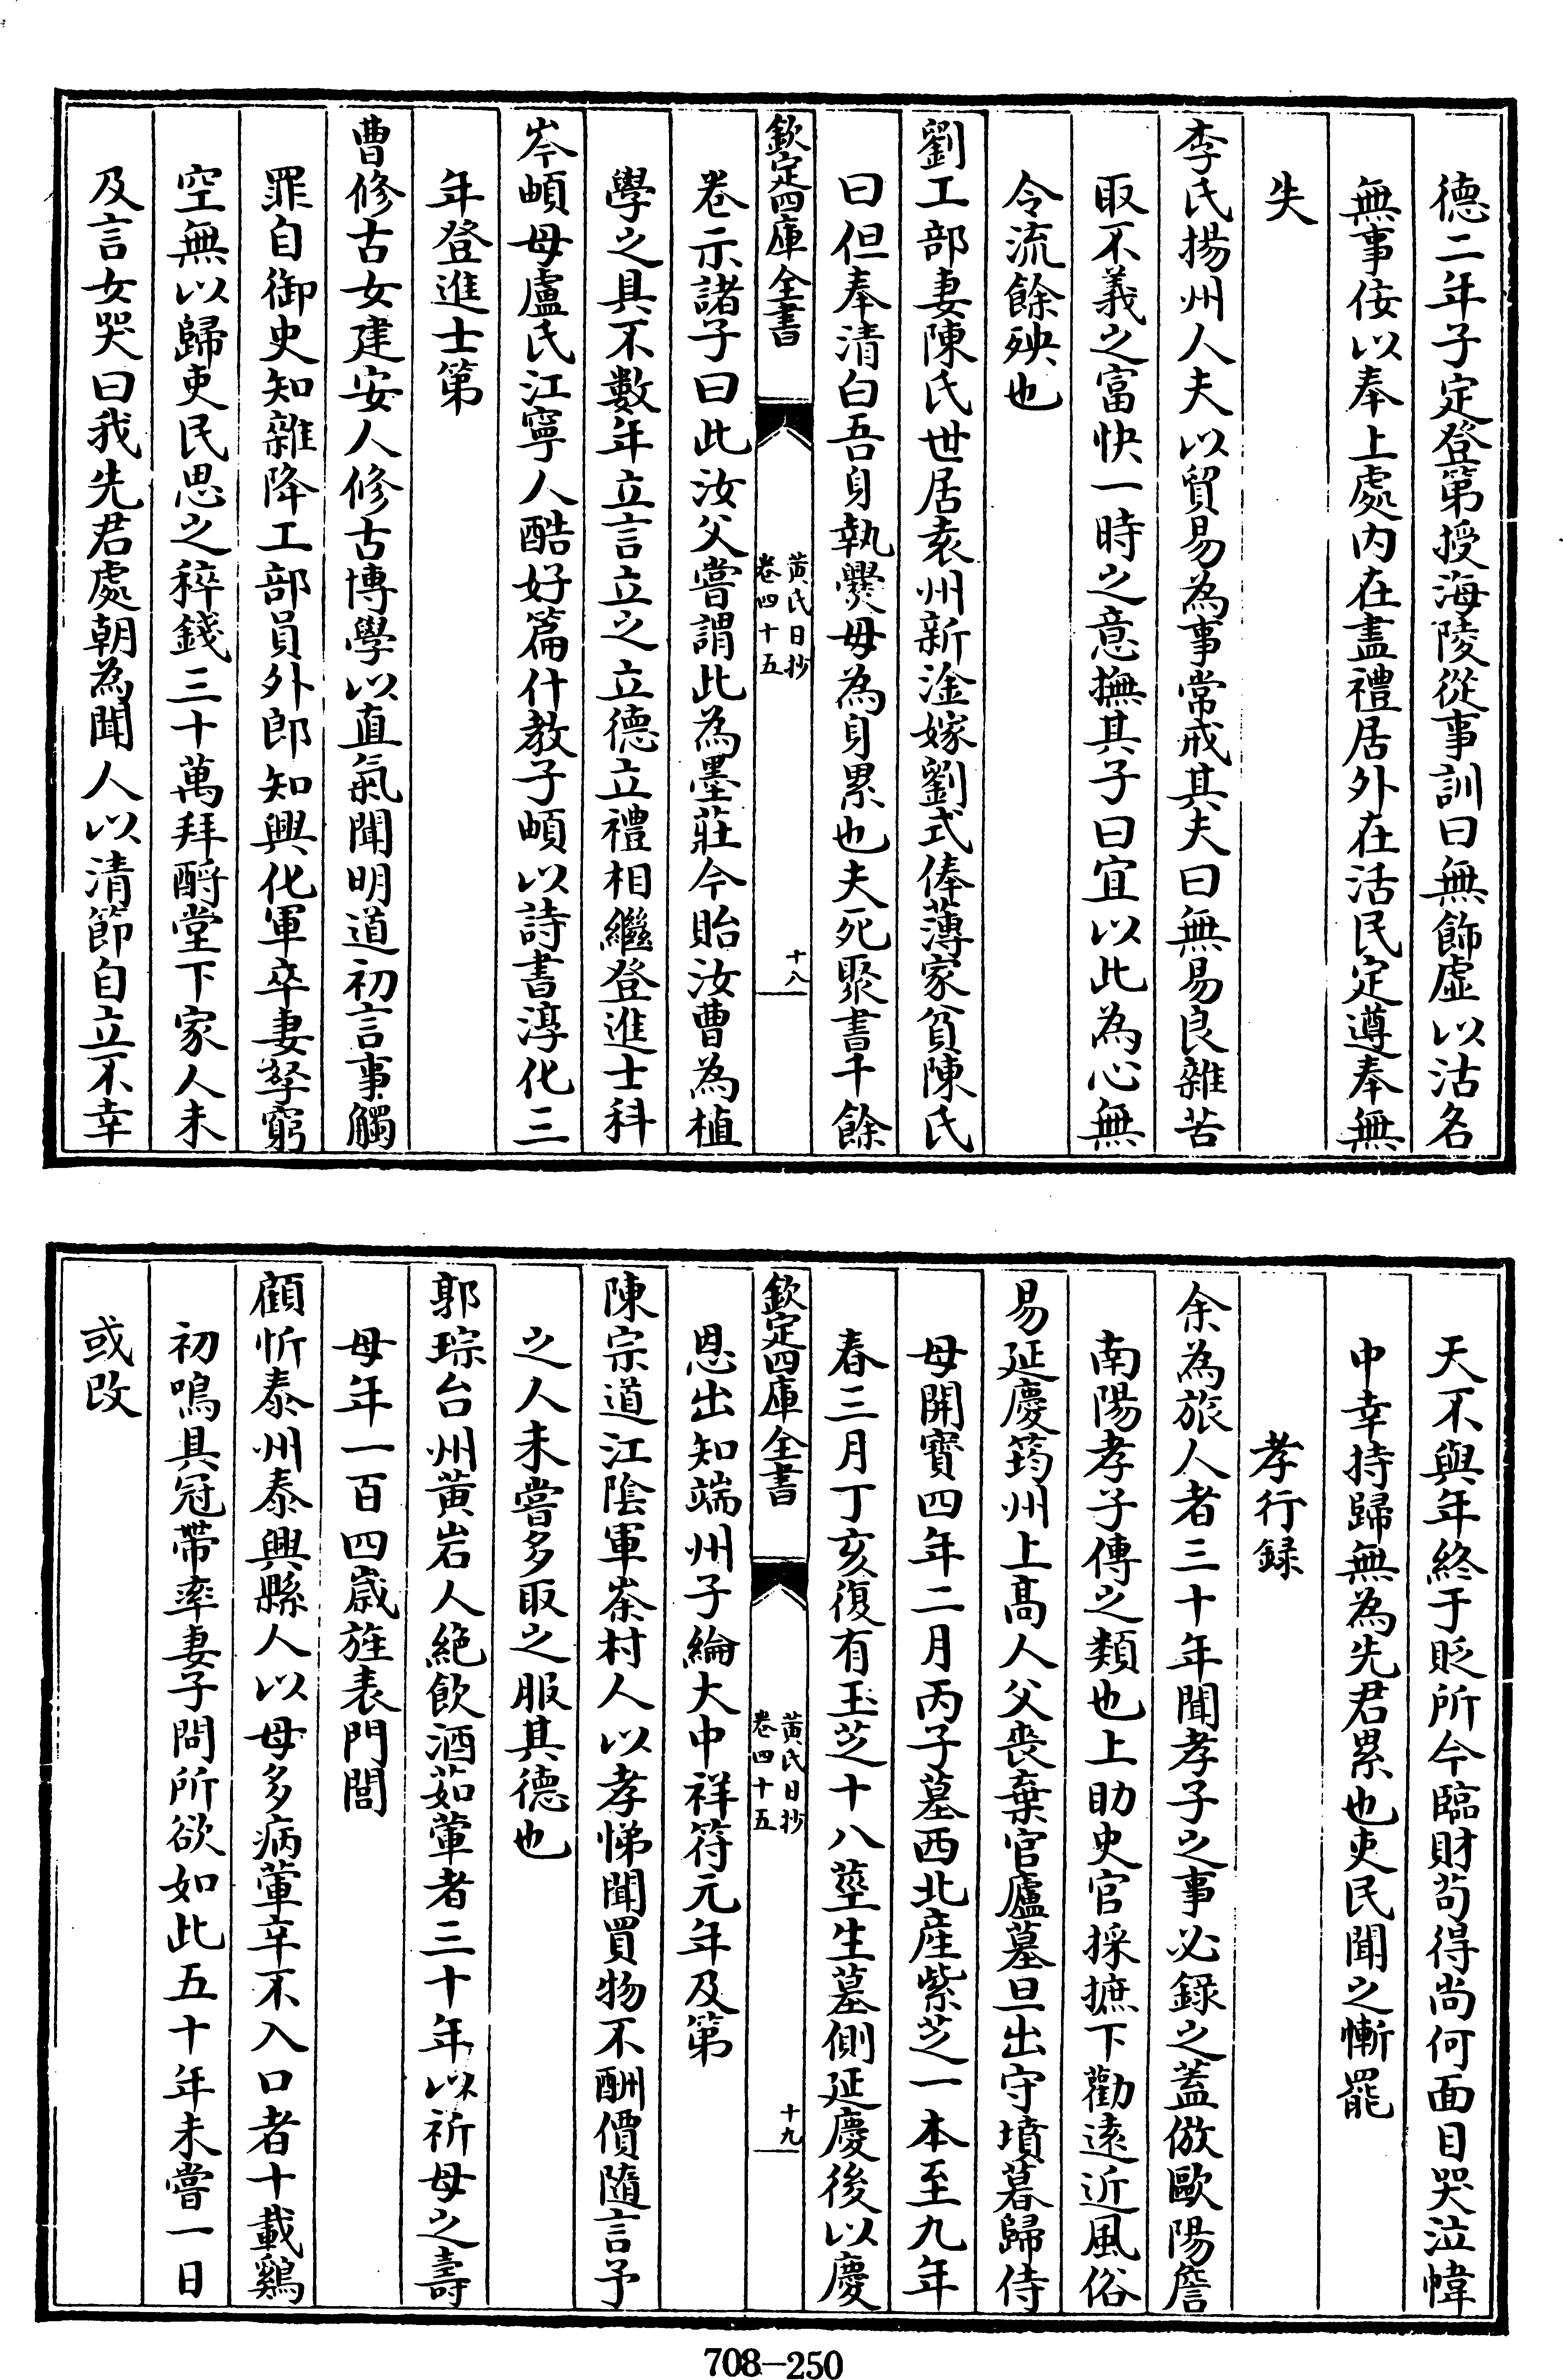 德二年子定登第授海陵從事訓曰無飾虛以沽名
無事佞以奉上處内在盡禮居外在活民定遵奉無
失
李氏揚州人夫以貿易為事常戒其夫曰無易良雜苦
取不義之富快一時之意撫其子曰宜以此為心無
令流餘殃也
劉工部妻陳氏世居袁州新淦嫁劉式俸薄家貧陳氏
曰但奉清白吾身執爨毋為身累也夫死聚書千餘
欽定四庫全書
黄氏日抄
卷四十五
十八
卷示諸子曰此汝父嘗謂此為墨莊今貽汝曹為植
學之具不數年立言立之立德立禮相繼登進士科
岑𫠆母盧氏江寧人酷好篇什教子𫠆以詩書淳化三
年登進士第
曹修古女建安人修古博學以直氣聞明道初言事觸
罪自御史知雜降工部員外郎知興化軍卒妻孥窮
空無以歸吏民思之稡錢三十萬拜酹堂下家人未
及言女哭曰我先君處朝為聞人以清節自立不幸
天不與年終于貶所今臨財苟得尚何面目哭泣幃
中幸持歸無為先君累也吏民聞之慚罷
孝行録
余為旅人者三十年聞孝子之事必録之蓋倣歐陽詹
南陽孝子傳之類也上助史官採摭下勸逺近風俗
易延慶筠州上髙人父喪棄官廬墓旦出守墳暮歸侍
母開寳四年二月丙子墓西北産紫芝一本至九年
春三月丁亥復有玉芝十八莖生墓側延慶後以慶
欽定四庫全書
黄氏日抄
卷四十五
十九
恩出知端州子綸大中祥符元年及第
陳宗道江陰軍茶村人以孝悌聞買物不酬價隨言予
之人未嘗多取之服其德也
郭琮台州黄岩人絶飲酒茹葷者三十年以祈母之壽
母年一百四歲旌表門閭
顧忻泰州泰興縣人以母多病葷辛不入口者十載鷄
初鳴具冠帶率妻子問所欲如此五十年未嘗一日
或改
708-250